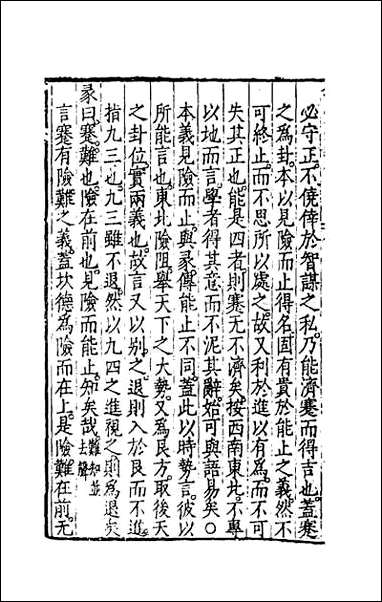 必守正不僥倖於智謀之私乃能濟蹇而得吉也蓋蹇
之為卦本以見險而止得名固有貴於能止之義然不
可終止而不思所以處之故又利於進以有為而不可
失其正也能是四者則蹇无不濟矣按西南東北不專
以地而言學者得其意而不泥其辭始可與語易矣○
本義見險而止與彖傳能止不同蓋此以時勢言彼以
所能言也東北險阻舉天下之大勢又為艮方取後天
之卦位實兩義也故言又以別之退則入於艮而不進
指九三也九三雖不退然以九四之進視之則為退矣
彖曰蹇難也險在前也見險而能止知矣哉難知並去聲
言蹇有險難之義蓋坎德為險而在上是險難在前无